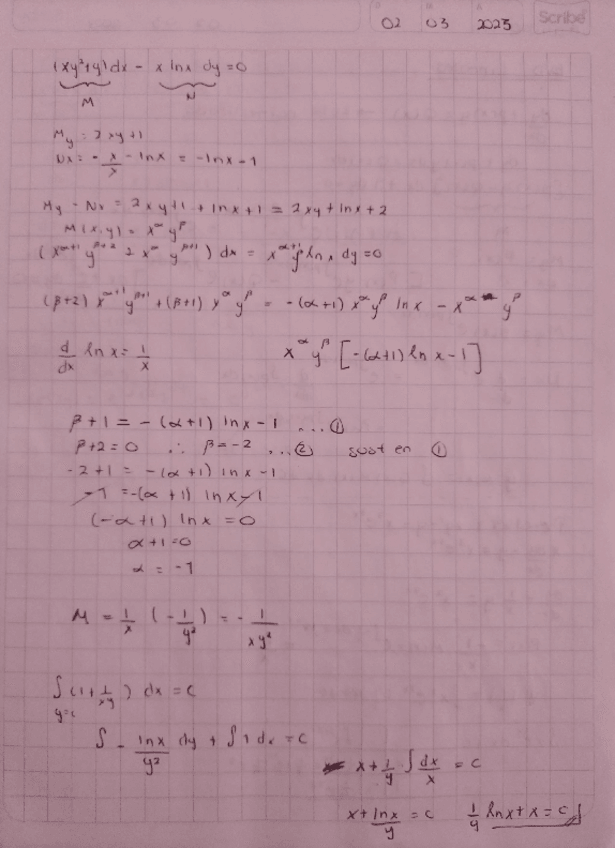 02 03 2023 Scribe
(xy²+y)dx - x lnx dy = 0
M N
My = 2xy+1
Nx = - x/x - lnx = -lnx-1
My - Nx = 2xy+1 + lnx+1 = 2xy+lnx+2
M(x,y) = x^α y^β
(x^(α+1) y^(β+2) + x^α y^(β+1)) dx = x^(α+1) y^β ln x dy = 0
(β+2) x^(α+1) y^(β+1) + (β+1) x^α y^β = -(α+1) x^α y^β ln x - x^α y^β
d/dx ln x = 1/x x^α y^β [-(α+1) ln x - 1]
β+1 = -(α+1) ln x - 1 ... ①
β+2 = 0 ∴ β = -2 ... ② sust en ①
-2+1 = -(α+1) ln x - 1
-1 = -(α+1) ln x - 1
(-α+1) ln x = 0
α+1 = 0
α = -1
M = 1/x (-1/y²) = - 1/xy²
∫(1 + 1/xy) dx = c
y=c
∫ - lnx/y² dy + ∫1 dx = c
x + 1/y ∫ dx/x = c
x + lnx/y = c 1/y lnx + x = c